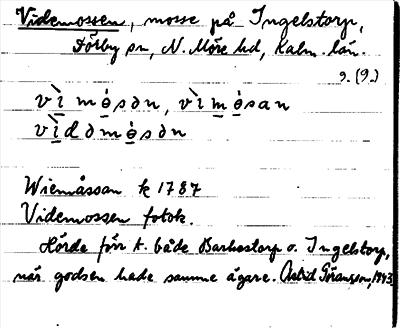 Videmossen, mosse på Ingelstorp,
Förby sn, N. Möre hd, Kalm. län.
9. (9.)
vì mo̱sən, vi̱mo̱san
vìdəmo̱sən
Wiemåssan k 1787
Videmossen fotok.
Hörde förr t. både Barkestorp o. Ingelstorp,
när godsen hade samme ägare. Astrid Göransson, 1943